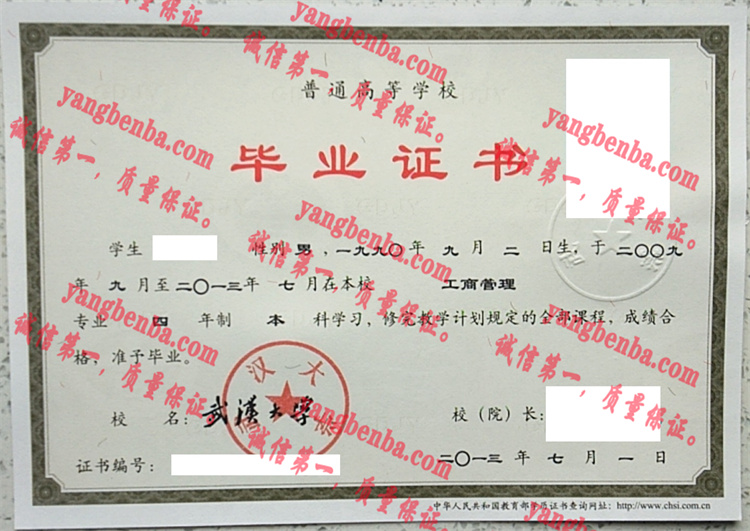 普通高等学校
毕业证书
学生 性别 男，一九九〇年 九 月 二 日生，于二〇〇九
年 九 月至二〇一三年 七 月在本校 工商管理
专业 四 年制 本 科学习，修完教学计划规定的全部课程，成绩合
格，准予毕业。
校 名：武漢大学
校（院）长：
证书编号：
二〇一三 年 七 月 一 日
中华人民共和国教育部学历证书查询网址：http://www.chsi.com.cn
汉大
yangbenba.com
诚信第一，质量保证。
yangbenba.com
诚信第一，质量保证。
yangbenba.com
诚信第一，质量保证。
yangbenba.com
诚信第一，质量保证。
yangbenba.com
诚信第一，质量保证。
yangbenba.com
诚信第一，质量保证。
yangbenba.com
诚信第一，质量保证。
yangbenba.com
诚信第一，质量保证。
yangbenba.com
诚信第一，质量保证。